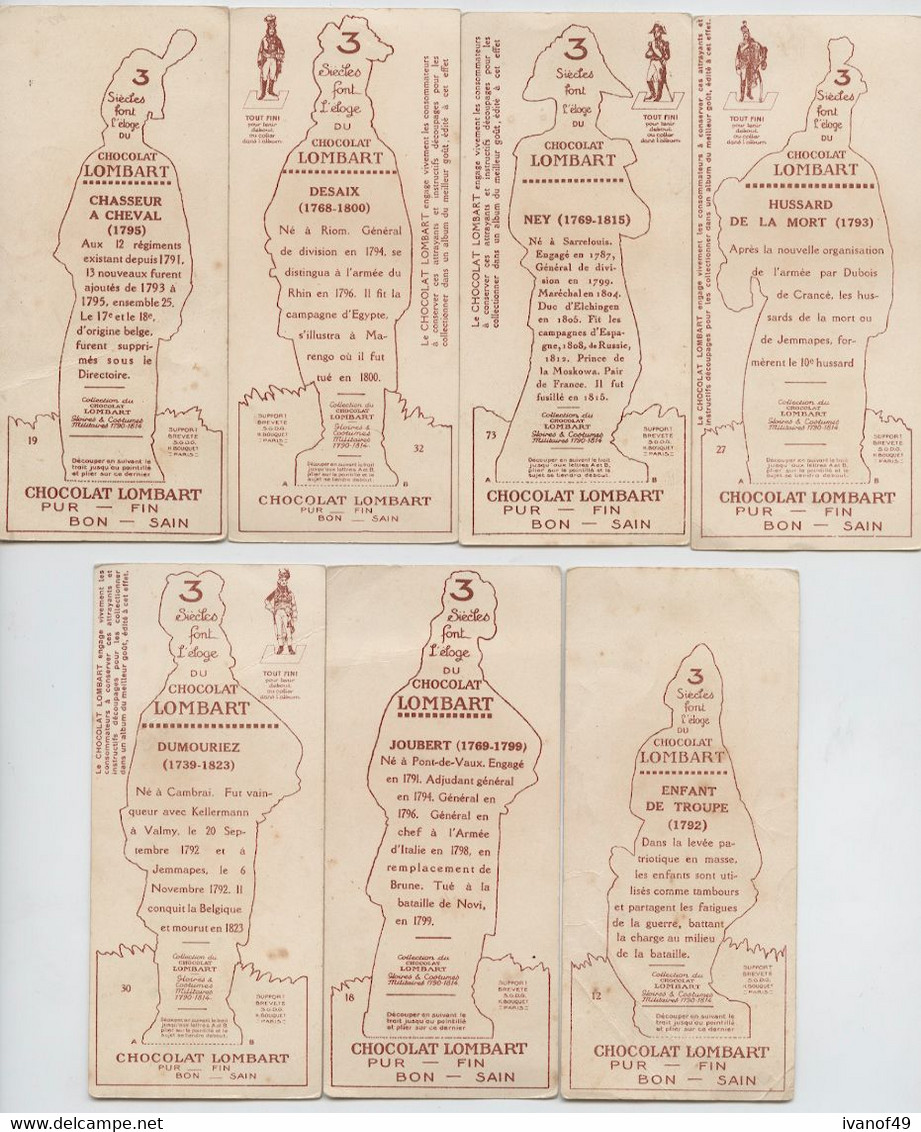 3
Siècles
font
l'éloge
DU
CHOCOLAT
LOMBART
CHASSEUR
A CHEVAL
(1795)
Aux 12 régiments
existant depuis 1791,
13 nouveaux furent
ajoutés de 1793 à
1795, ensemble 25.
Le 17e et le 18e,
d'origine belge,
furent suppri-
més sous le
Directoire.
Collection du
CHOCOLAT
LOMBART
Gloires & Costumes
Militaires 1790-1814
19
SUPPORT
BREVETÉ
S.G.D.G.
H. BOUQUET
PARIS
Découper en suivant le
trait jusqu'au pointillé
et plier sur ce dernier
CHOCOLAT LOMBART
PUR — FIN
BON — SAIN
TOUT FINI
pour tenir
debout,
ou coller
dans l'album.
3
Siècles
font
l'éloge
DU
CHOCOLAT
LOMBART
DESAIX
(1768-1800)
Né à Riom. Général
de division en 1794, se
distingua à l'armée du
Rhin en 1796. Il fit la
campagne d'Egypte,
s'illustra à Ma-
rengo où il fut
tué en 1800.
Le CHOCOLAT LOMBART engage vivement les consommateurs
à conserver ces attrayants et instructifs découpages pour les
collectionner dans un album du meilleur goût, édité à cet effet
Collection du
CHOCOLAT
LOMBART
Gloires & Costumes
Militaires
1790-1814.
32
SUPPORT
BREVETÉ
S.G.D.G.
H. BOUQUET
PARIS
Découper en suivant le trait
jusqu'aux lettres A et B,
plier sur le pointillé et le
sujet se tiendra debout.
A B
CHOCOLAT LOMBART
PUR — FIN
BON — SAIN
Le CHOCOLAT LOMBART engage vivement les consommateurs
à conserver ces attrayants et instructifs découpages pour les
collectionner dans un album du meilleur goût, édité à cet effet
3
Siècles
font
l'éloge
DU
CHOCOLAT
LOMBART
TOUT FINI
pour tenir
debout,
ou coller
dans l'album.
NEY (1769-1815)
Né à Sarrelouis.
Engagé en 1787,
Général de divi-
sion en 1799.
Maréchal en 1804.
Duc d'Elchingen
en 1805. Fit les
campagnes d'Espa-
gne, 1808, de Russie,
1812. Prince de
la Moskowa. Pair
de France. Il fut
fusillé en 1815.
Collection du
CHOCOLAT
LOMBART
Gloires & Costumes
Militaires 1790-1814
73
SUPPORT
BREVETÉ
S.G.D.G.
H. BOUQUET
PARIS
Découper en suivant le trait
jusqu'aux lettres A et B,
plier sur le pointillé et le
sujet se tiendra debout.
A B
CHOCOLAT LOMBART
PUR — FIN
BON — SAIN
Le CHOCOLAT LOMBART engage vivement les consommateurs à conserver ces attrayants et
instructifs découpages pour les collectionner dans un album du meilleur goût, édité à cet effet
TOUT FINI
pour tenir
debout,
ou coller
dans l'album.
3
Siècles
font
l'éloge
DU
CHOCOLAT
LOMBART
HUSSARD
DE LA MORT (1793)
Après la nouvelle organisation
de l'armée par Dubois
de Crancé, les hus-
sards de la mort ou
de Jemmapes, for-
mèrent le 10e hussard
Collection du
CHOCOLAT
LOMBART
Gloires & Costumes
Militaires 1790-1814
27
SUPPORT
BREVETÉ
S.G.D.G.
H. BOUQUET
PARIS
Découper en suivant le trait
jusqu'aux lettres A et B,
plier sur le pointillé et le
sujet se tiendra debout.
A B
CHOCOLAT LOMBART
PUR — FIN
BON — SAIN
Le CHOCOLAT LOMBART engage vivement les
consommateurs à conserver ces attrayants et
instructifs découpages pour les collectionner
dans un album du meilleur goût, édité à cet effet.
3
Siècles
font
l'éloge
DU
CHOCOLAT
LOMBART
TOUT FINI
pour tenir
debout,
ou coller
dans l'album.
DUMOURIEZ
(1739-1823)
Né à Cambrai. Fut vain-
queur avec Kellermann
à Valmy, le 20 Sep-
tembre 1792 et à
Jemmapes, le 6
Novembre 1792. Il
conquit la Belgique
et mourut en 1823
Collection du
CHOCOLAT
LOMBART
Gloires &
Costumes
Militaires
1790-1814.
30
SUPPORT
BREVETÉ
S.G.D.G.
H. BOUQUET
PARIS
Découper en suivant le trait
jusqu'aux lettres A et B,
plier sur le pointillé et le
sujet se tiendra debout.
A B
CHOCOLAT LOMBART
PUR — FIN
BON — SAIN
3
Siècles
font
l'éloge
DU
CHOCOLAT
LOMBART
JOUBERT (1769-1799)
Né à Pont-de-Vaux. Engagé
en 1791. Adjudant général
en 1794. Général en
1796. Général en
chef à l'Armée
d'Italie en 1798, en
remplacement de
Brune. Tué à la
bataille de Novi,
en 1799.
Collection du
CHOCOLAT
LOMBART
Gloires & Costumes
Militaires 1790-1814
18
SUPPORT
BREVETÉ
S.G.D.G.
H. BOUQUET
PARIS
Découper en suivant le
trait jusqu'au pointillé
et plier sur ce dernier
CHOCOLAT LOMBART
PUR — FIN
BON — SAIN
3
Siècles
font
l'éloge
DU
CHOCOLAT
LOMBART
ENFANT
DE TROUPE
(1792)
Dans la levée pa-
triotique en masse,
les enfants sont uti-
lisés comme tambours
et partagent les fatigues
de la guerre, battant
la charge au milieu
de la bataille.
Collection du
CHOCOLAT
LOMBART
Gloires & Costumes
Militaires 1790-1814.
12
SUPPORT
BREVETÉ
S.G.D.G.
H. BOUQUET
PARIS
Découper en suivant le
trait jusqu'au pointillé
et plier sur ce dernier
CHOCOLAT LOMBART
PUR — FIN
BON — SAIN
ivanof49